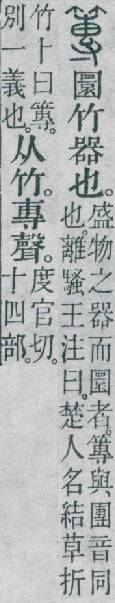 篿圜竹器也。
盛物之器而圜者。篿與團音同
也。離騷王注曰。楚人名結草折
竹卜曰篿。
別一義也。
从竹。專聲。
度官切。
十四部。